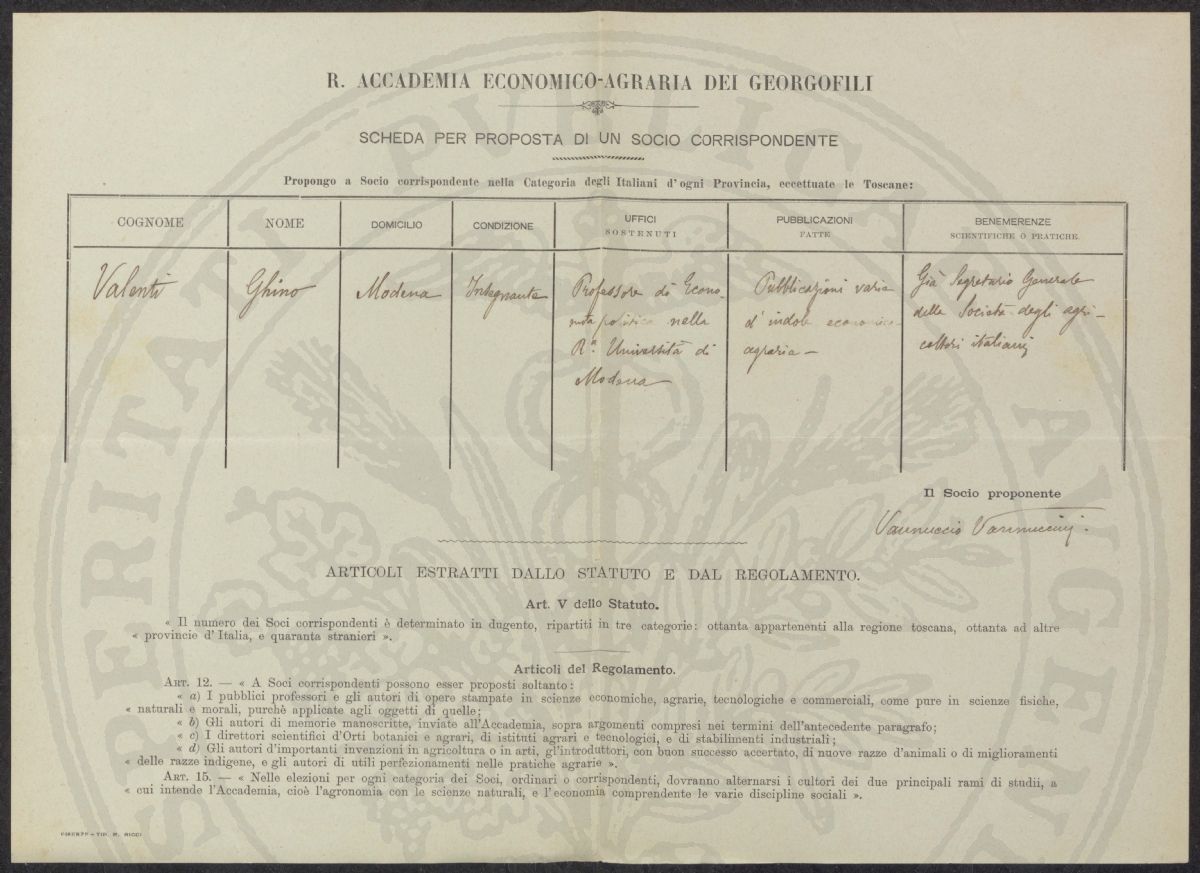 R. ACCADEMIA ECONOMICO-AGRARIA DEI GEORGOFILI
SCHEDA PER PROPOSTA DI UN SOCIO CORRISPONDENTE
Propongo a Socio corrispondente nella Categoria degli Italiani d'ogni Provincia, eccettuate le Toscane:
COGNOME
NOME
DOMICILIO
CONDIZIONE
UFFICI
SOSTENUTI
PUBBLICAZIONI
FATTE
BENEMERENZE
SCIENTIFICHE O PRATICHE
Valenti
Ghino
Modena
Insegnante
Professore di Econo-
mia politica nella
R.a Università di
Modena
Pubblicazioni varie
d'indole economico
agraria —
Già Segretario Generale
della Società degli agri-
coltori italiani
Il Socio proponente
Vannuccio Vannuccini
ARTICOLI ESTRATTI DALLO STATUTO E DAL REGOLAMENTO.
Art. V dello Statuto.
« Il numero dei Soci corrispondenti è determinato in dugento, ripartiti in tre categorie: ottanta appartenenti alla regione toscana, ottanta ad altre
« provincie d'Italia, e quaranta stranieri ».
Articoli del Regolamento.
ART. 12. — « A Soci corrispondenti possono esser proposti soltanto:
« a) I pubblici professori e gli autori di opere stampate in scienze economiche, agrarie, tecnologiche e commerciali, come pure in scienze fisiche,
« naturali e morali, purchè applicate agli oggetti di quelle;
« b) Gli autori di memorie manoscritte, inviate all'Accademia, sopra argomenti compresi nei termini dell'antecedente paragrafo;
« c) I direttori scientifici d'Orti botanici e agrari, di istituti agrari e tecnologici, e di stabilimenti industriali;
« d) Gli autori d'importanti invenzioni in agricoltura o in arti, gl'introduttori, con buon successo accertato, di nuove razze d'animali o di miglioramenti
« delle razze indigene, e gli autori di utili perfezionamenti nelle pratiche agrarie ».
ART. 15. — « Nelle elezioni per ogni categoria dei Soci, ordinari o corrispondenti, dovranno alternarsi i cultori dei due principali rami di studii, a
« cui intende l'Accademia, cioè l'agronomia con le scienze naturali, e l'economia comprendente le varie discipline sociali ».
FIRENZE – TIP. M. RICCI